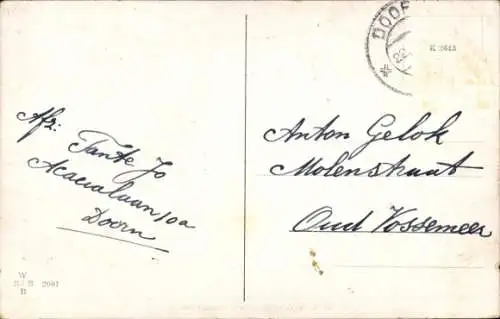 DOOR
K 2645
Afz:
Tante Jo
Acacialaan 10a
Doorn
Anton Gelok
Molenstraat
Oud Vossemeer
W
B